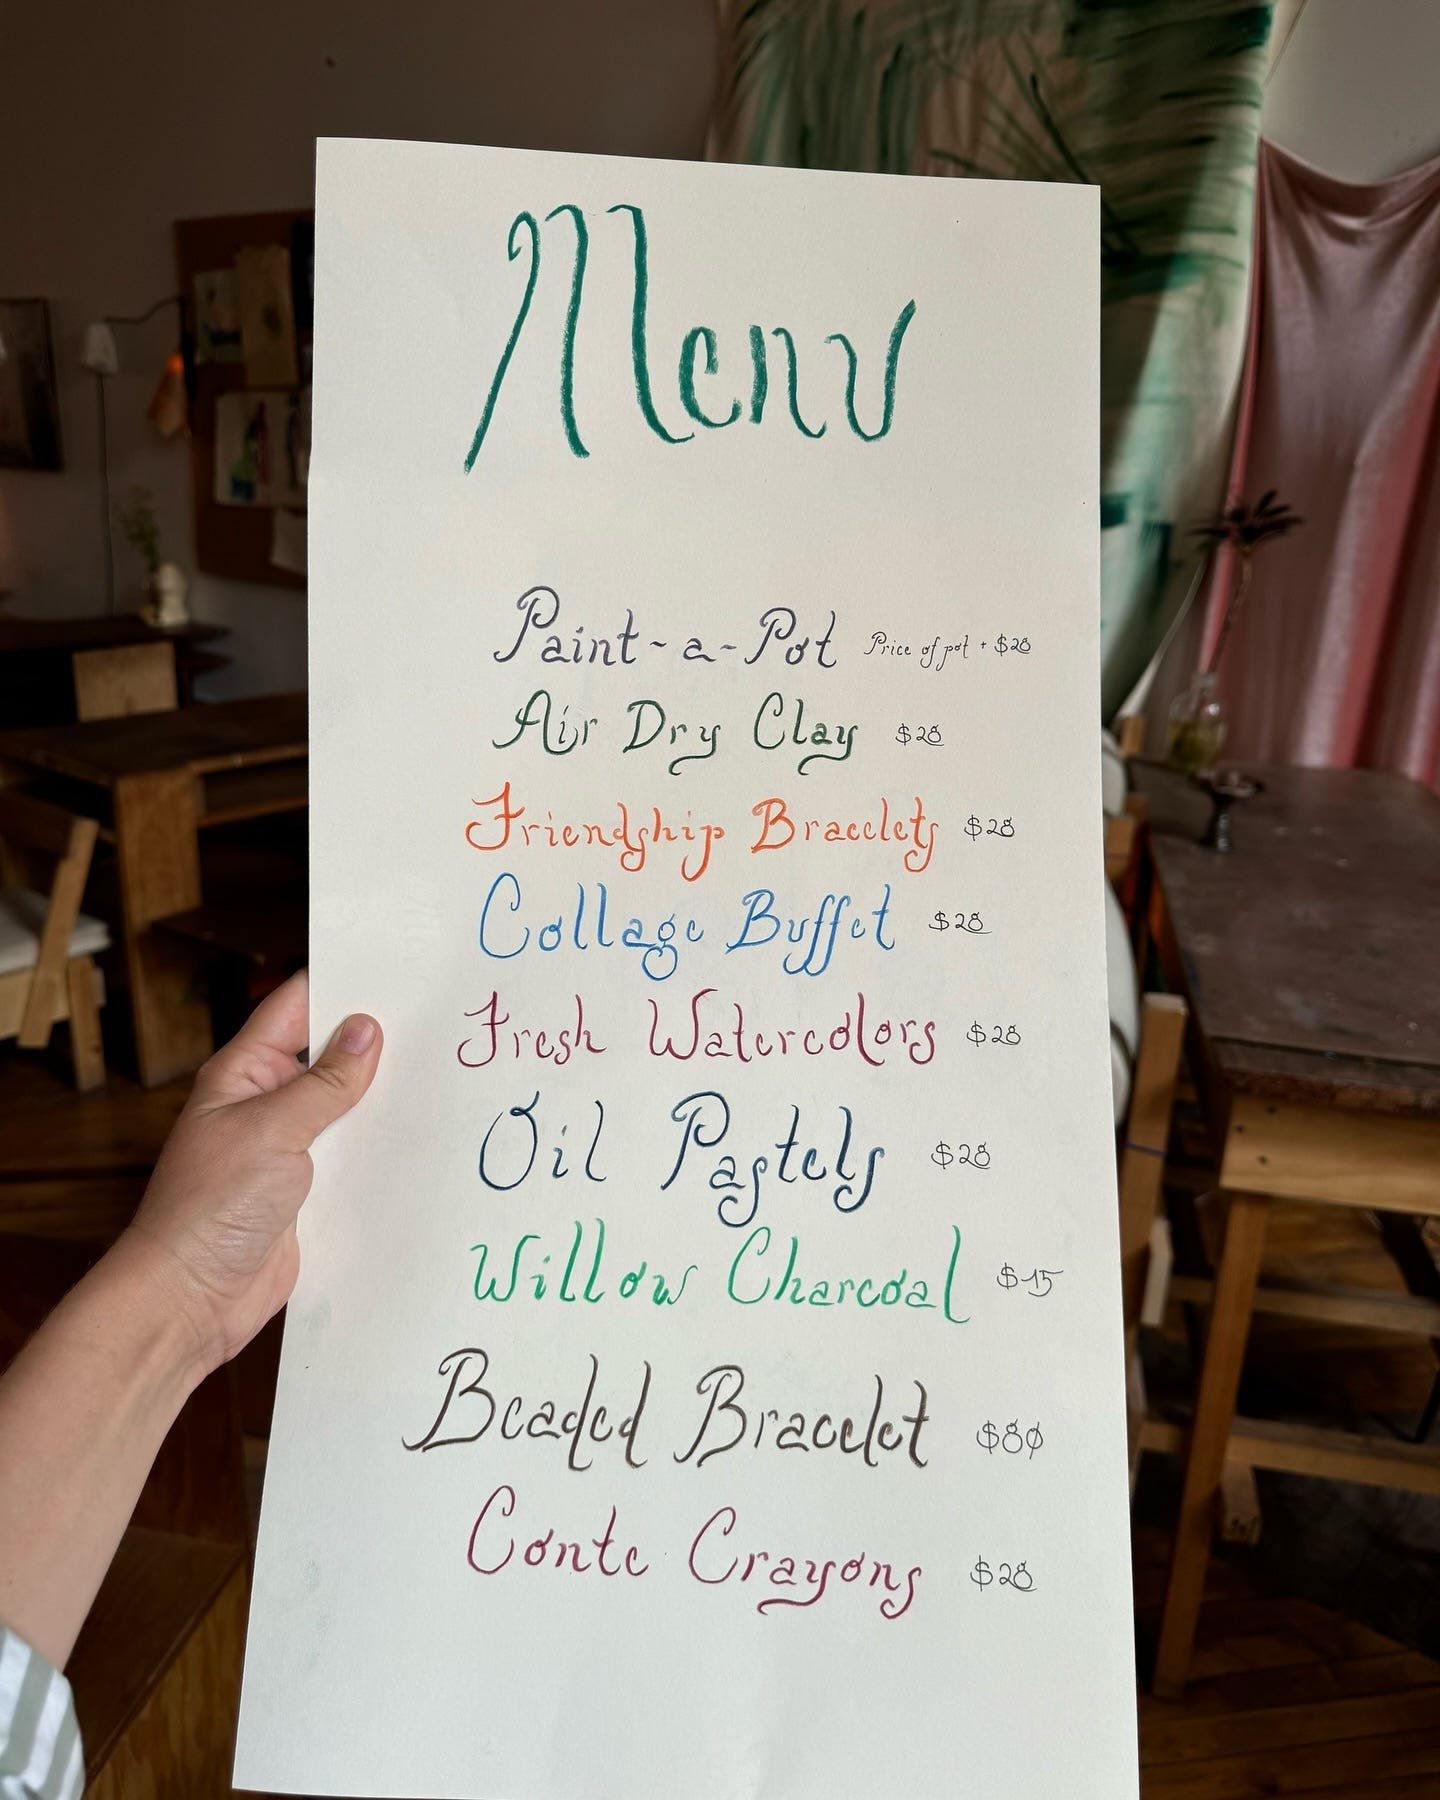 Menu
Paint-a-Pot Price of pot + $28
Air Dry Clay $28
Friendship Bracelets $28
Collage Buffet $28
Fresh Watercolors $28
Oil Pastels $28
Willow Charcoal $15
Beaded Bracelet $80
Conte Crayons $28